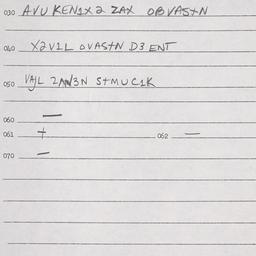 030 AVU KEN1X2 ZAX OBVASTN
040 X2V1L OVASTN D3 ENT
050 VAJL 3N STMUC1K
060 —
061 + 062 —
070 —